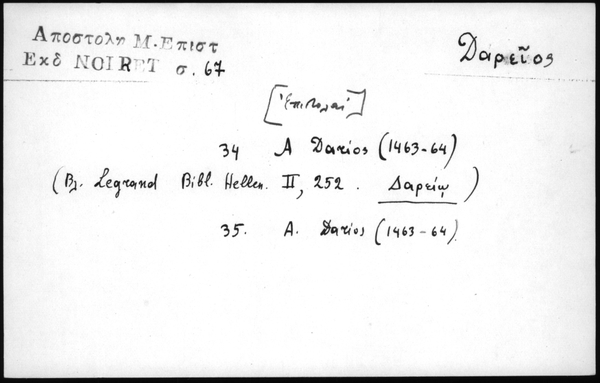 Αποστολη Μ. Επιστ
Εκδ NOIRET σ. 67
Δαρεῖος
[Ἐπιστολαί]
34 A Darios (1463-64)
(Βλ. Legrand Bibl. Hellen. II, 252. Δαρείῳ)
35. A. Darios (1463-64)